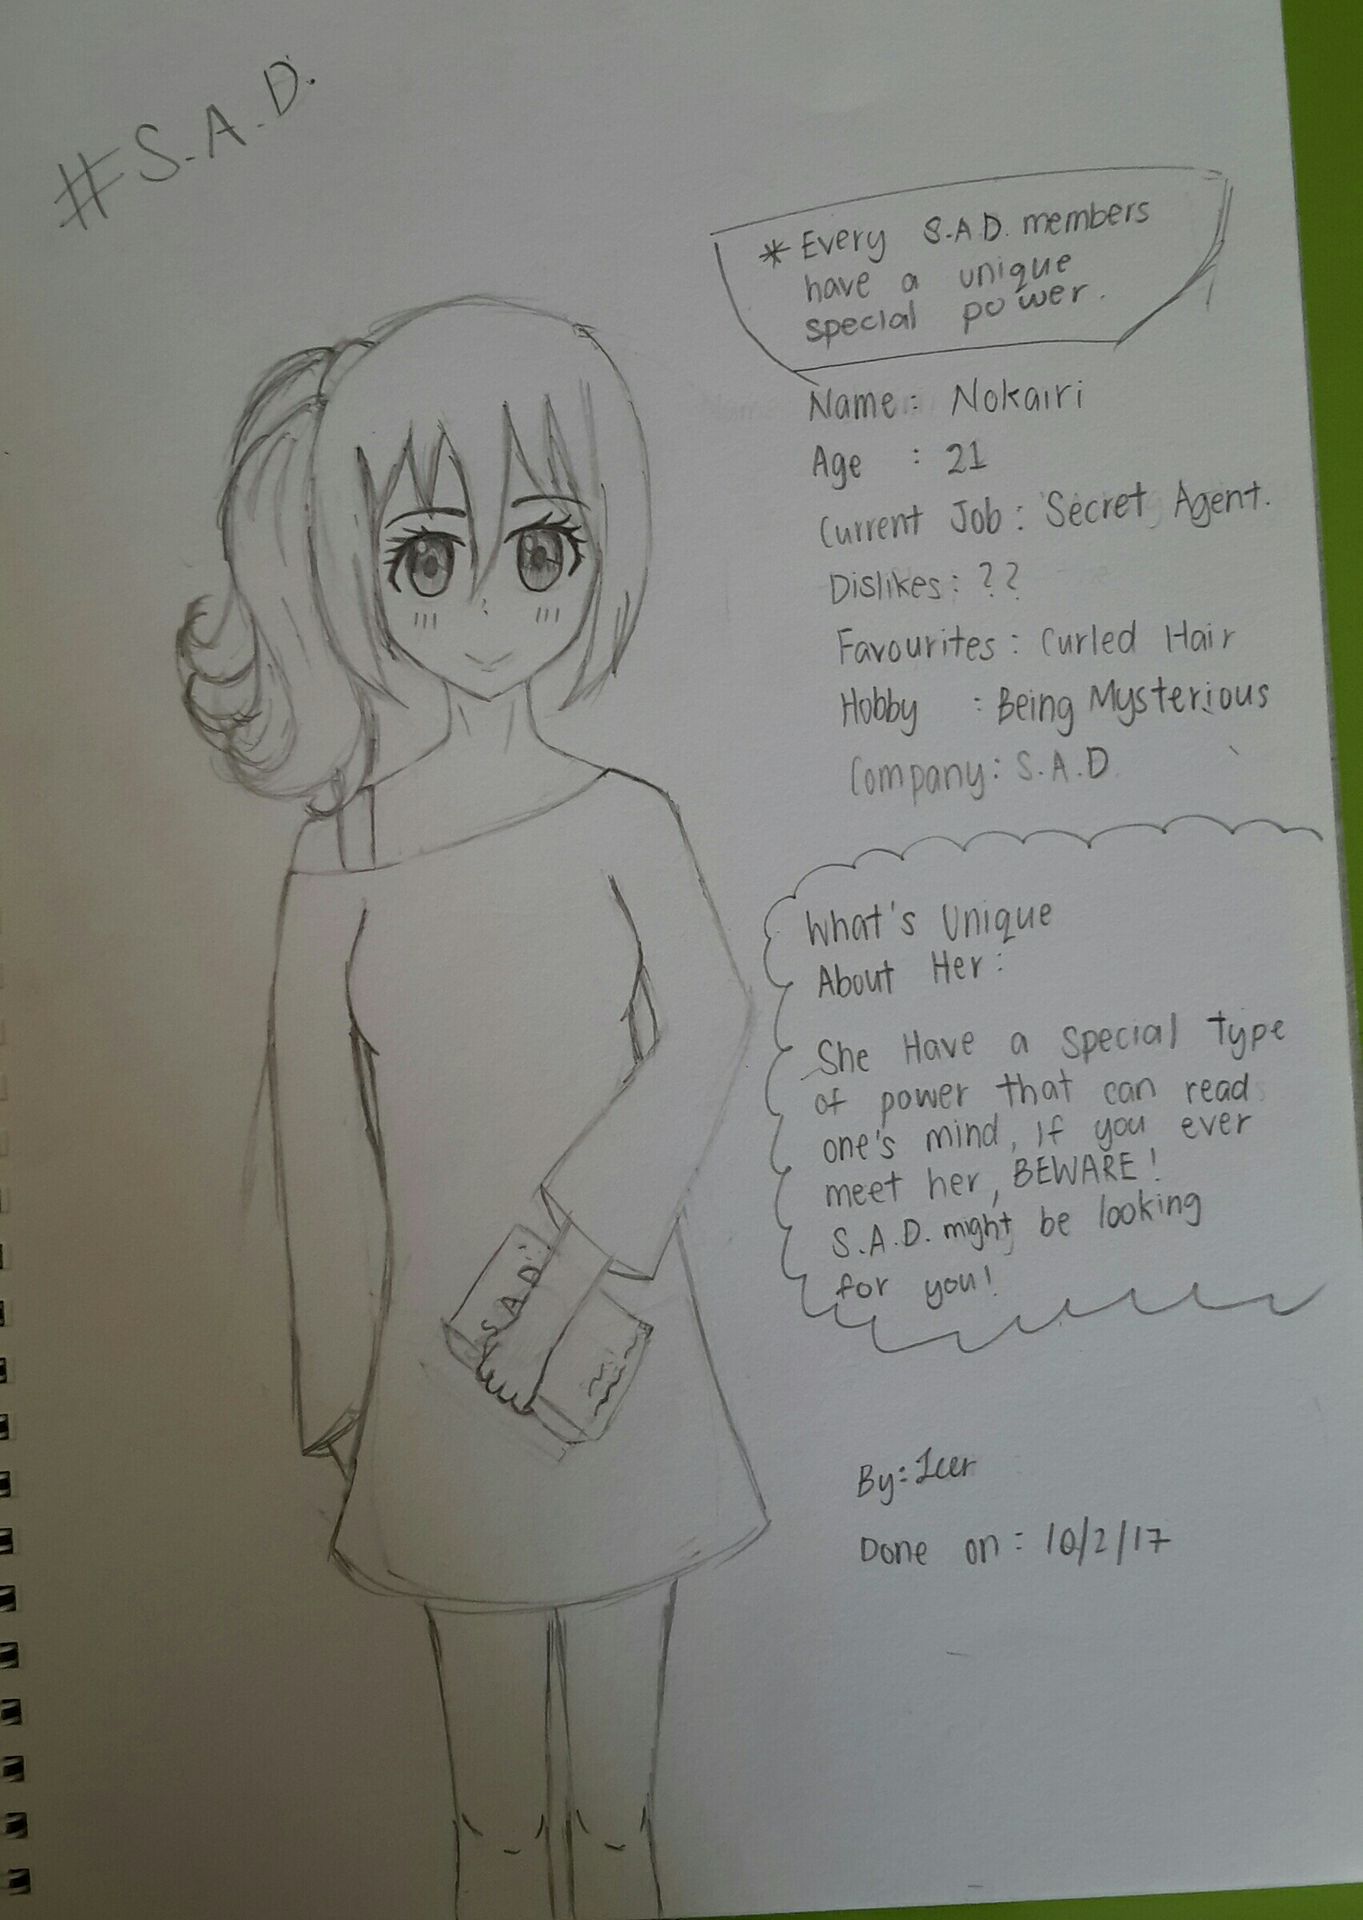 #S.A.D.
* Every S.A.D. members
have a unique
special power.
Name: Nokairi
Age : 21
Current Job: Secret Agent.
Dislikes: ??
Favourites: Curled Hair
Hobby : Being Mysterious
Company: S.A.D.
What's Unique
About Her:
She Have a special type
of power that can read
one's mind, If you ever
meet her, BEWARE!
S.A.D. might be looking
for you!
S.A.D.
By: Icer
Done on: 10/2/17